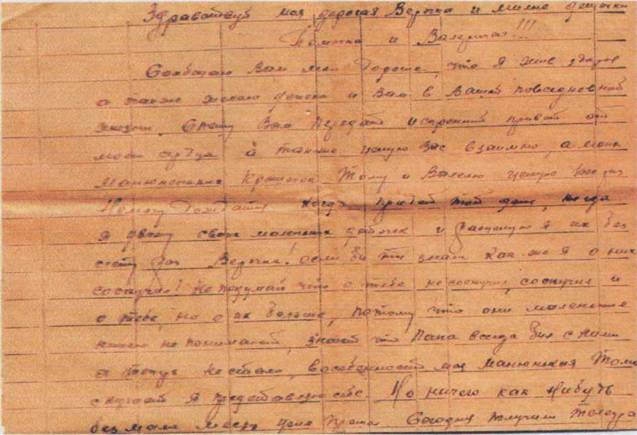 Здравствуй моя дорогая Верочка и милые дочки
Томочка и Валечка!!!
Сообщаю Вам мои дорогие, что я жив здоров
а также желаю дочкам и Вам в Вашей повседневной
жизни. Спешу Вам передать искренний привет от
моего сердца а также целую Вас взаимно, а моих
крошечек Тому и Валечку целую
Немогу дождаться когда придет тот день, когда
я увижу своих маленьких дочек и расцелую я их без
счету Верочка! если бы ты знала как же я о них
соскучил! Не подумай что о тебе не соскучил, соскучил и
о тебе, но о их больше, потому что они маленькие
ничего не понимают, знают что папа всегда был с нами
а теперь не стало, в особенности моя манюнькая Тома
скучает я представляю себе. Но ничего как нибудь
без мала месяц уже прошел. Сегодня получили